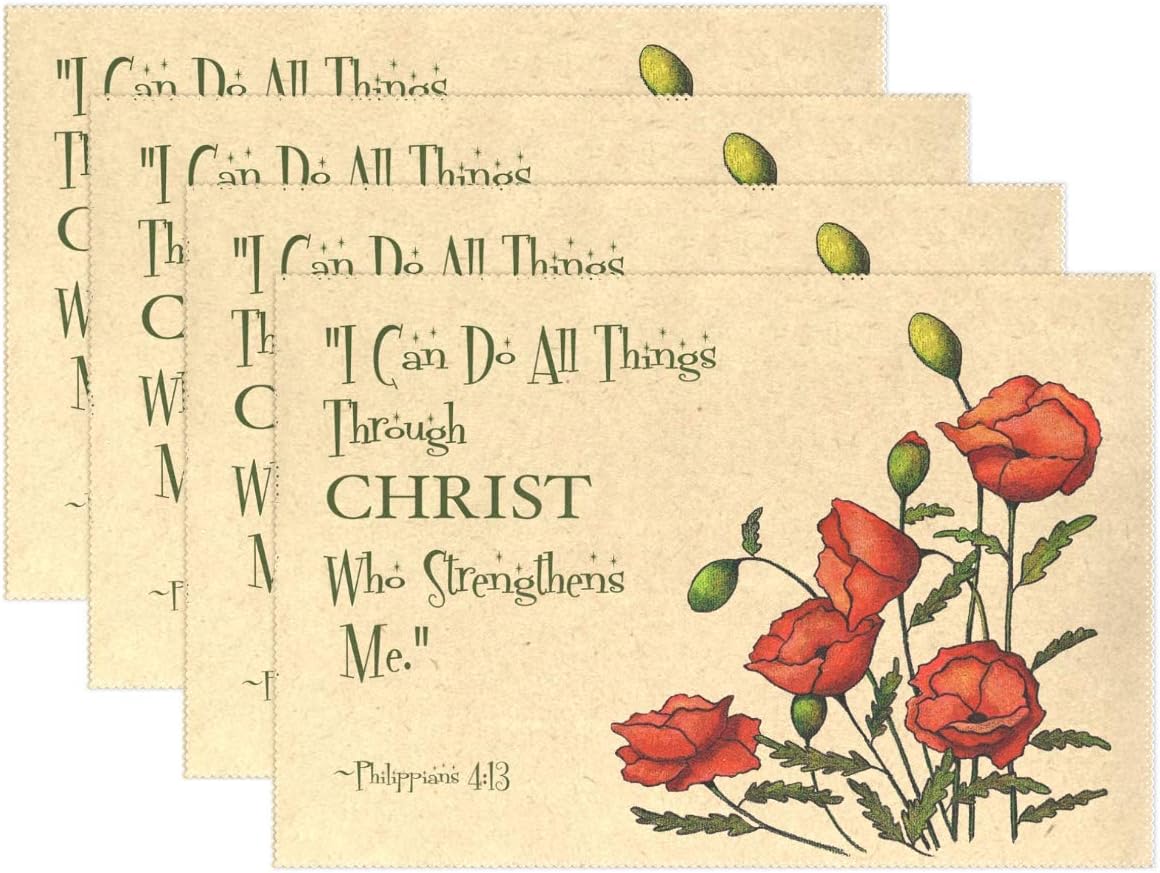 "I Can Do All Things
Th
C
W
M
~
"I Can Do All Things
Th
C
Wh
M
~P
"I Can Do All Things
Th
C
W
M
~P
"I Can Do All Things
Through
CHRIST
Who Strengthens
Me."
~Philippians 4:13